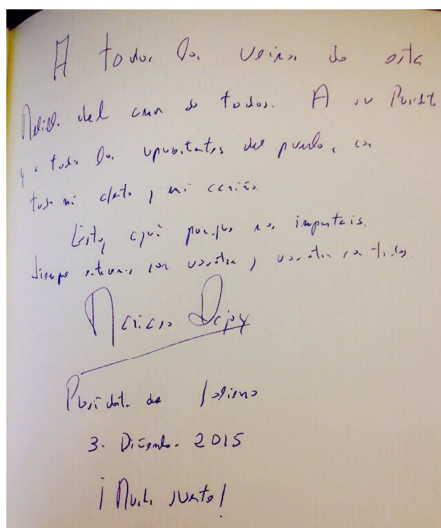 A todos los vecinos de esta
del de todos. A su
y a todos los del pueblo, con
todo mi afecto y mi cariño
Estoy aquí porque nos importais.
Siempre estaremos con vosotros y vosotros con todos.
Mariano Rajoy
Presidente de Gobierno
3. Diciembre. 2015
¡Mucha suerte!